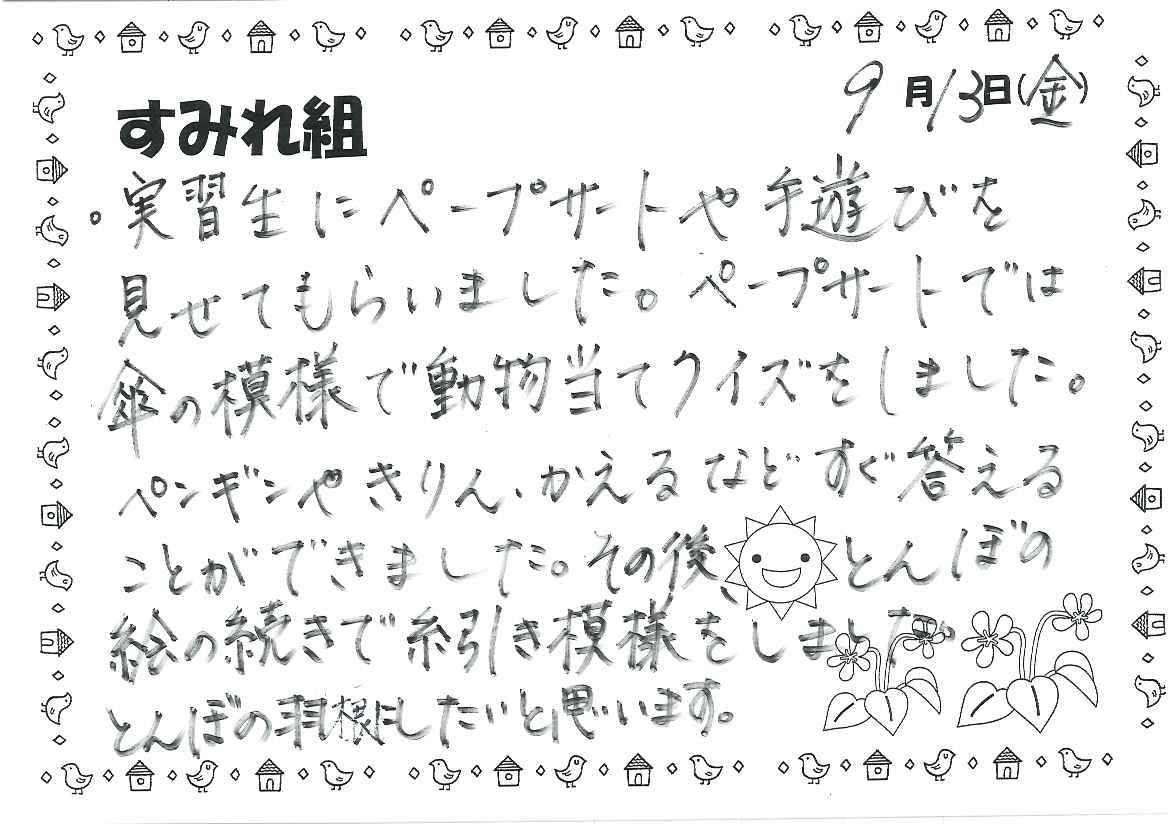 9月13日(金)
すみれ組
。実習生にペープサートや手遊びを
見せてもらいました。ペープサートでは
傘の模様で動物当てクイズをしました。
ペンギンやきりん、かえるなどすぐ答える
ことができました。その後、とんぼの
絵の続きで糸引き模様をしました。
とんぼの羽根にしたいと思います。